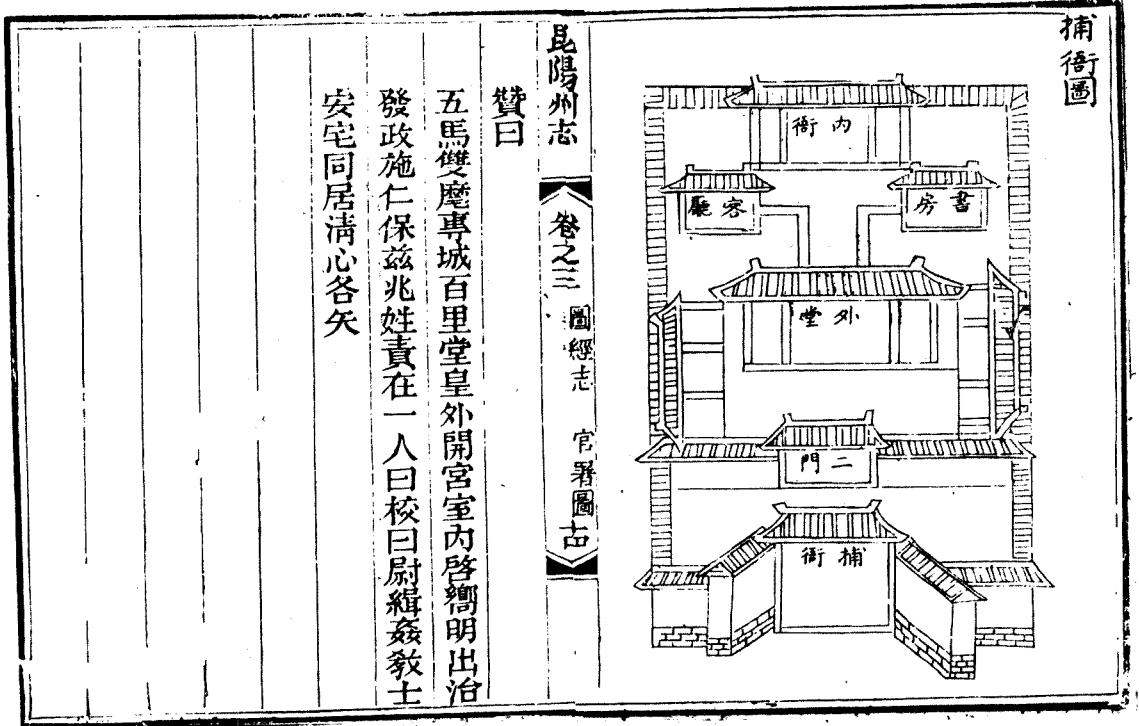 捕衙圖
內衙
書房
客廳
外堂
二門
捕衙
昆陽州志
卷之三
圖經志 官署圖 十四
贊曰
五馬雙麾專城百里堂皇外開宮室內啓嚮明出治
發政施仁保兹兆姓責在一人曰校曰尉緝姦敎士
安宅同居淸心各矢